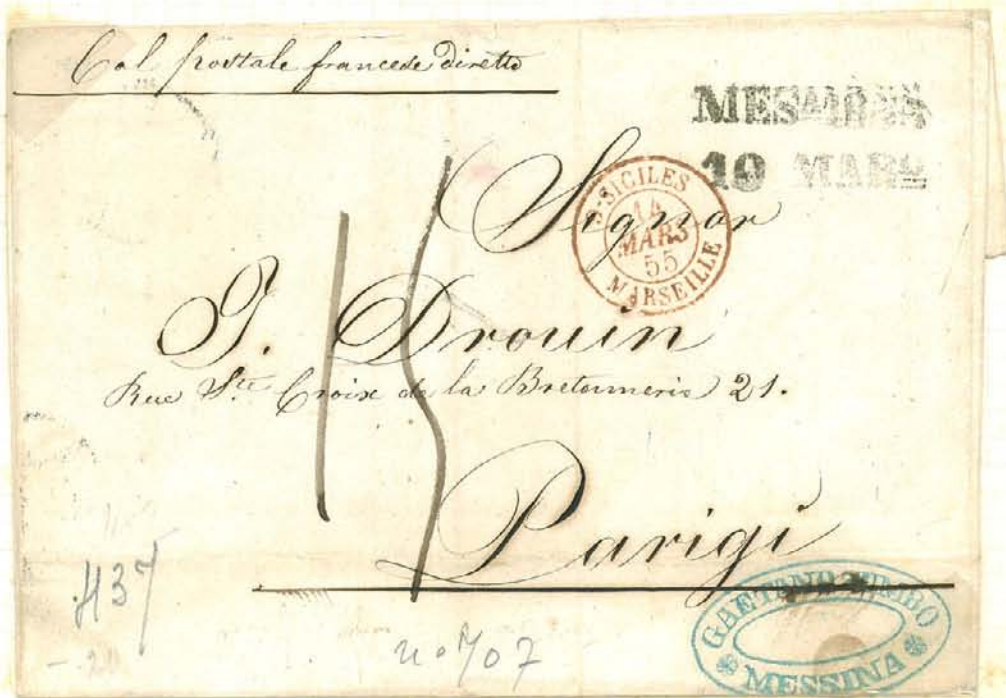 Col postale francese diretto
MESSINA
10 MARO
2. SICILES
14
MARS
55
MARSEILLE
Signor
J. Drouin
Rue Ste Croix de la Bretonnerie 21.
15
Parigi
GAETANO
MESSINA
437
no 707